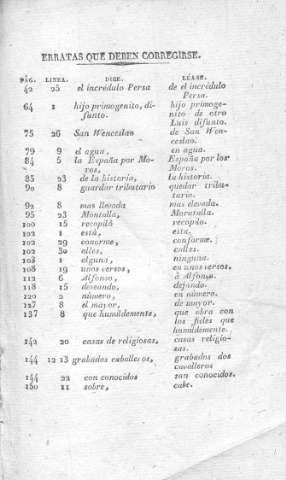 ERRATAS QUE DEBEN CORREGIRSE.
PÁG. LINEA. DICE. LÉASE.
42 25 el incrédulo Persa de el incrédulo
Persa.
64 1 hijo primogenito, di- hijo primoge-
funto. nito de otro
Luis difunto.
75 26 San Wenceslao de San Wen-
ceslao.
79 9 el agua, en agua.
84 5 la España por Mo- España por los
ros, Moros.
85 23 de la historia, la historia.
90 8 guardar tributario quedar tribu-
tario.
92 8 mas llevada mas elevada.
95 23 Montalla,
100 15 recopiló recopila.
102 1 está, esta.
102 29 conorme, conforme.
102 30 elles, calles.
103 1 alguna, ninguna.
108 19 unos versos, en unos versos.
112 6 Alfonso, á Alfonso.
118 15 deseando, dejando.
120 2 número, en número.
127 8 el mayor, de mayor.
137 8 que humildemente, que obra con
los fieles que
humildemente.
142 20 casas de religiosas, casas religio-
sas.
144 12 13 grabados caballeros, grabados dos
caballeros
144 22 con conocidos san conocidos.
150 11 sobre, cabe.